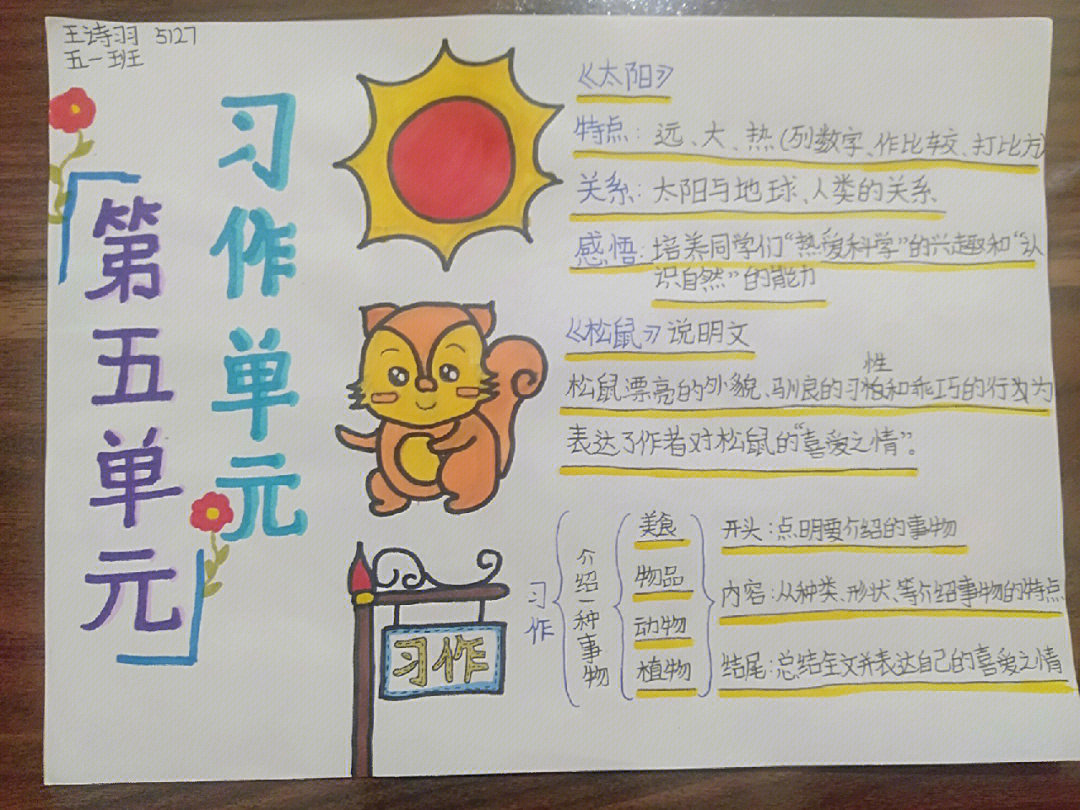 王诗羽 5127
五一班
第五单元
习作单元
《太阳》
特点：远、大、热(列数字、作比较、打比方)
关系：太阳与地球、人类的关系
感悟：培养同学们“热爱科学”的兴趣和“认
识自然”的能力
《松鼠》说明文
性
松鼠漂亮的外貌、驯良的习怕和乖巧的行为为
表达了作者对松鼠的“喜爱之情”。
习作
介绍一种事物
美食
物品
动物
植物
开头：点明要介绍的事物
内容：从种类、形状、等介绍事物的特点
结尾：总结全文并表达自己的喜爱之情
习作